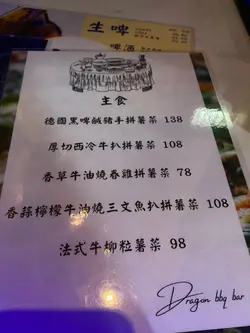 生啤
啤酒
主食
德國黑啤鹹豬手拼薯菜 138
厚切西冷牛扒拼薯菜 108
香草牛油燒春雞拼薯菜 78
香蒜檸檬牛油燒三文魚扒拼薯菜 108
法式牛柳粒薯菜 98
Dragon bbq bar